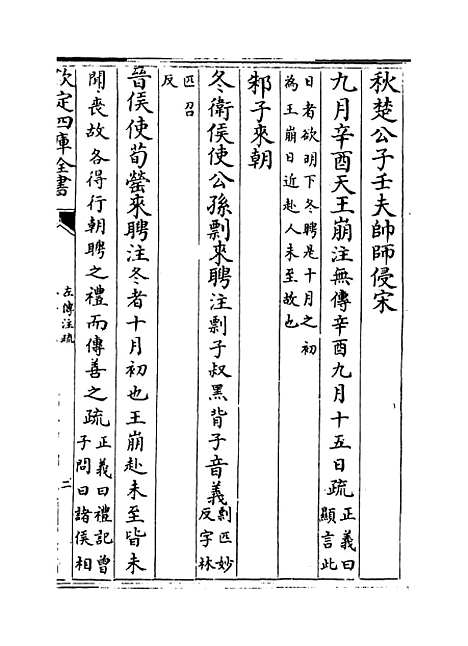 秋楚公子壬夫帥師侵宋
九月辛酉天王崩注無傳辛酉九月十五日疏正義曰顯言此
日者欲明下冬聘是十月之初為王崩日近赴人未至故也
邾子來朝
冬衛侯使公孫剽來聘注剽子叔黑背子音義剽匹妙反字林
匹召反
晉侯使荀罃來聘注冬者十月初也王崩赴未至皆未
聞喪故各得行朝聘之禮而傳善之疏正義曰禮記曾子問曰諸侯相
欽定四庫全書
左傳注疏
二